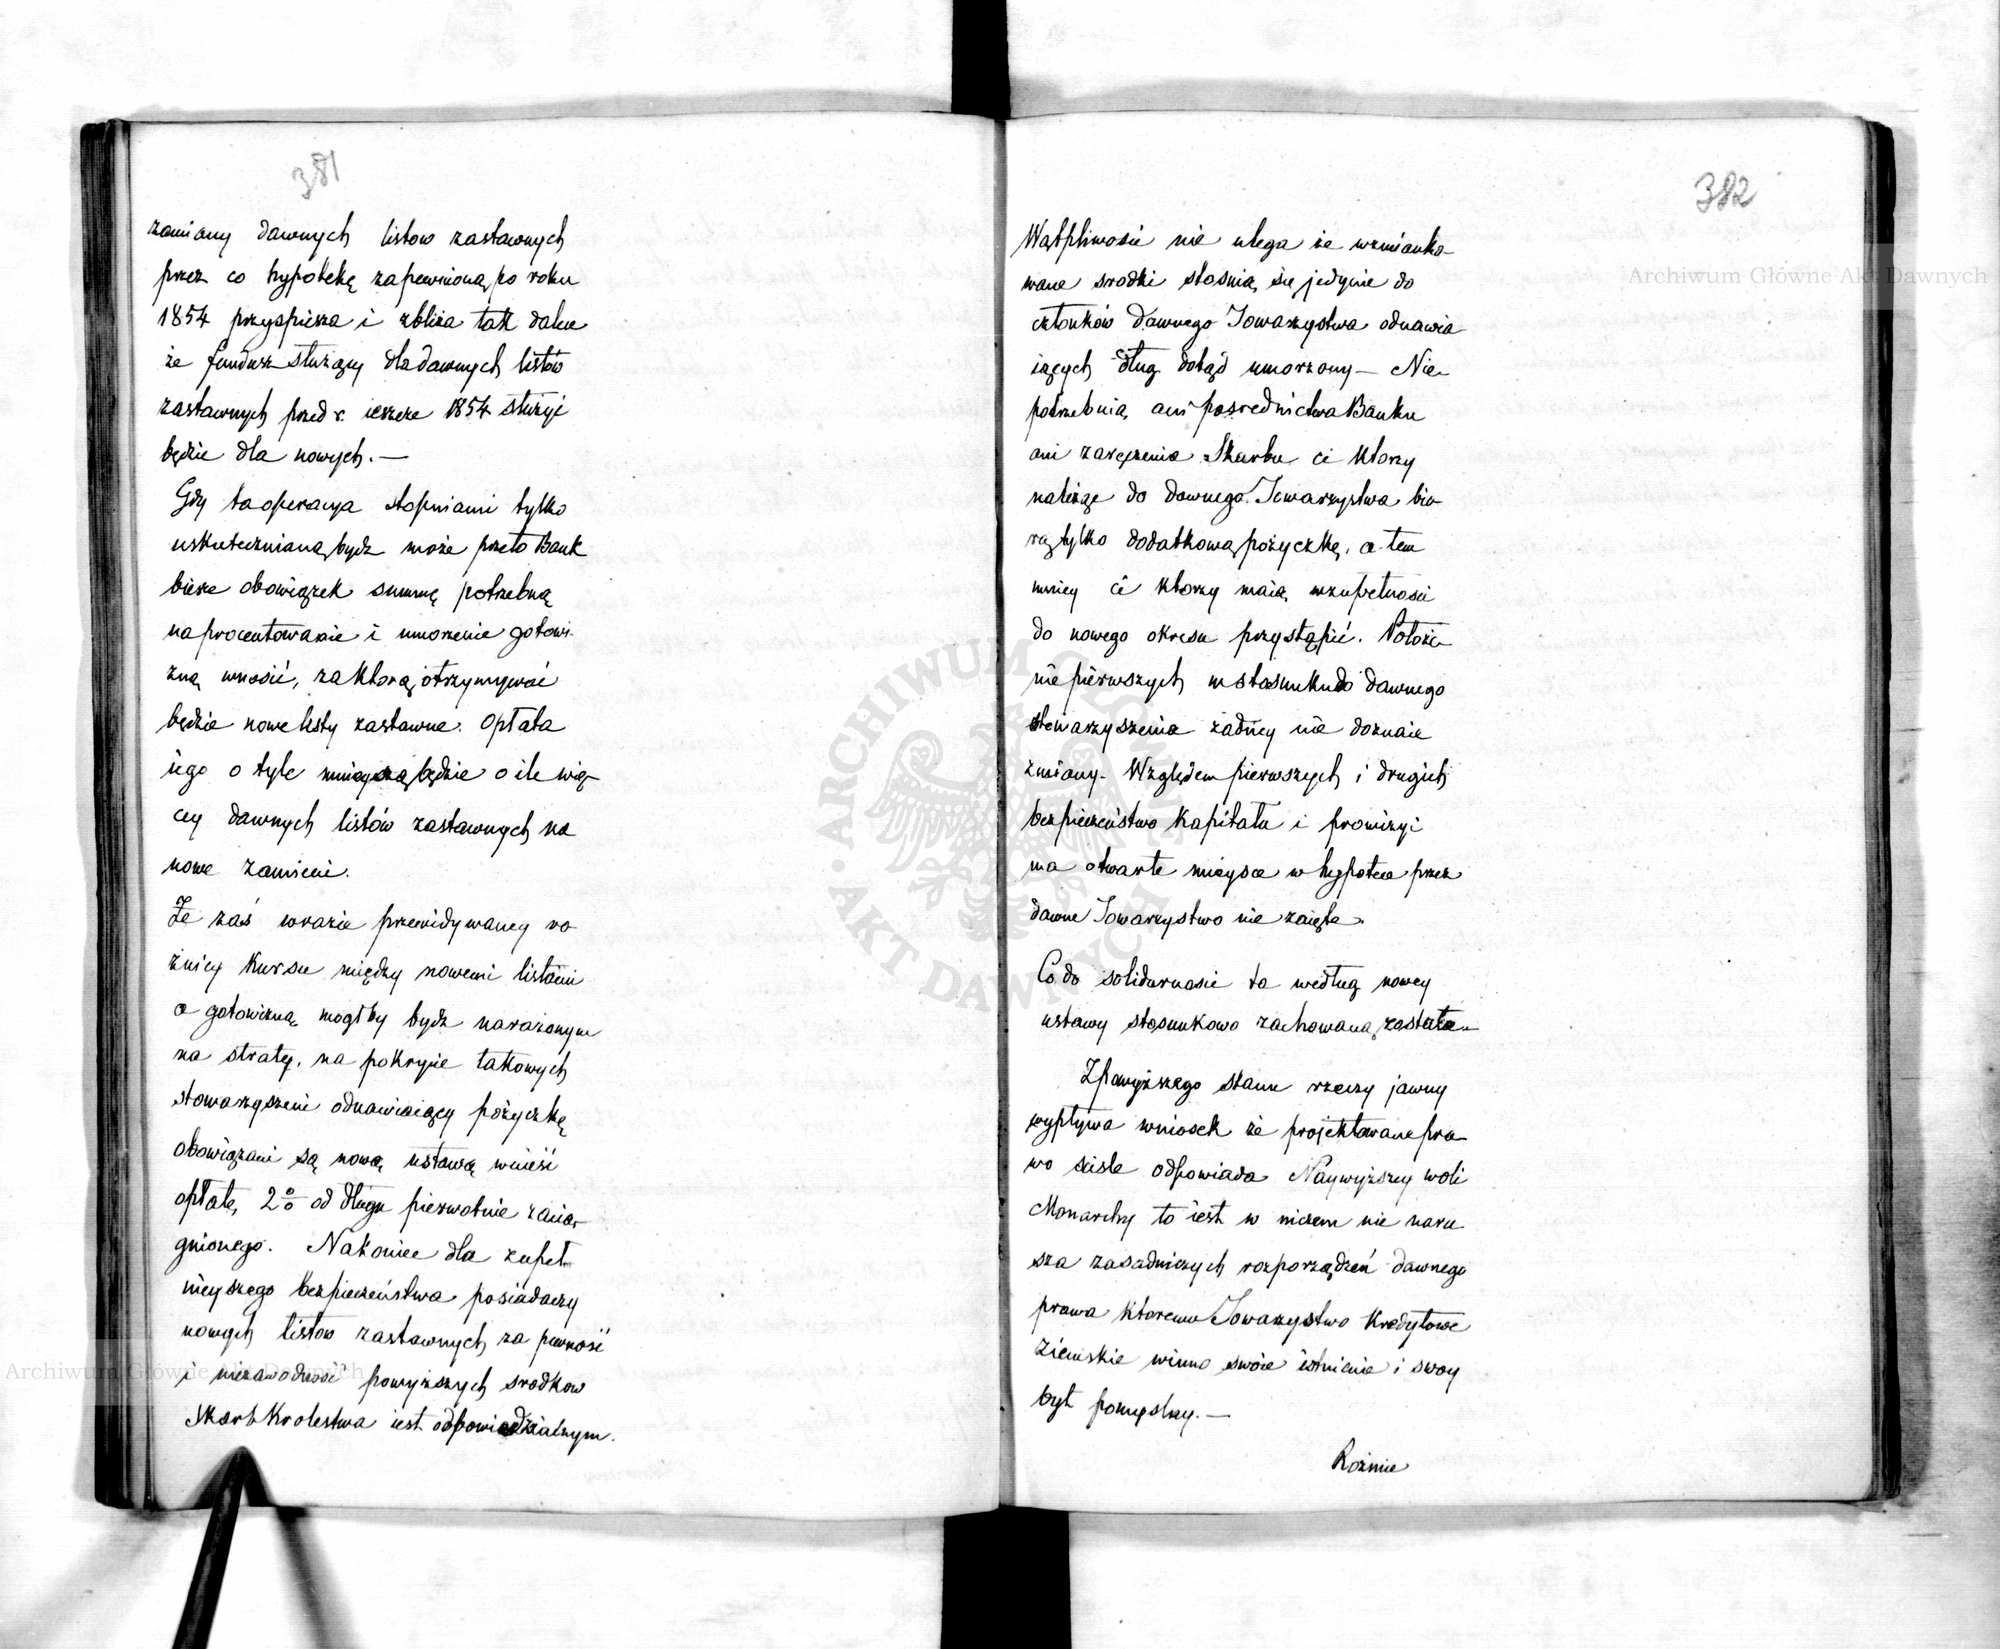 381
zamiany dawnych listow zastawnych
przez co hypotekę zapewnioną po roku
1854 przyspiesza i zbliża tak dalece
że fundusz służący dla dawnych listów
zastawnych przed r. ieszcze 1854 służyć
będzie dla nowych. —
Gdy ta operacya stopniami tylko
uskuteczniana bydz może przeto Bank
bierze obowiązek summę potrzebną
na procentowanie i umorzenie gotowi-
zną wnosić, za którą otrzymywać
będzie nowe listy zastawne. Opłata
iego o tyle mnieyszą będzie o ile wię-
cey dawnych listów zastawnych na
nowe zamieni.
Że zaś w razie przewidywaney ro
żnicy kursu między nowemi listami
a gotowizną mogłby bydz narażonym
na stratę, na pokrycie takowych
stowarzyszeni odnawiaiący pożyczkę
obowiązani są nową ustawą wnieść
opłatę 2% od długu pierwotnie zacią-
gnionego. Nakoniec dla zupeł-
nieyszego bezpieczeństwa posiadaczy
nowych listów zastawnych za pewność
i niezawodność powyższych srodkow
Skarb Krolestwa iest odpowiedzialnym.
382
Wątpliwosci nie ulega że wzmianko-
wane srodki stosuią się jedynie do
członków dawnego Towarzystwa odnawia
iących dług dotąd umorzony — Nie-
potrzebuią ani posrednictwa Banku
ani zaręczenia Skarbu ci ktorzy
należąc do dawnego Towarzystwa bio-
rą tylko dodatkową pożyczkę, a tem
mniey ci ktorzy maią w zupełnosci
do nowego okresu przystąpić. Położe-
nie pierwszych w stosunku do dawnego
stowarzyszenia żadney nie doznaie
zmiany. Względem pierwszych i drugich
bezpieczeństwo kapitału i prowizyi
ma otwarte mieysce w hypotece przez
dawne Towarzystwo nie zaięte.
Co do solidarnosci ta według nowey
ustawy stosunkowo zachowaną została.
Z powyższego stanu rzeczy jawny
wypływa wniosek że projektowane pra-
wo scisle odpowiada Naywyższey woli
Monarchy to iest w niczem nie naru
sza zasadniczych rozporządzeń dawnego
prawa ktoremu Towarzystwo Kredytowe
Ziemskie winno swóie istnienie i swoy
byt pomyslny. —
Roznie